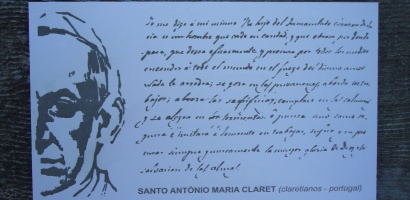 Yo me digo á mi mismo: Un hijo del Inmaculado Corazon de Maria
es un hombre que arde en caridad, y que abrasa por donde
pasa, que desea eficazmente y procura por todos los medios
encender á todo el mundo en el fuego del divino amor.
Nada le arredra; se goza en las privaciones, aborda los tra-
bajos; abraza los sacrificios, complace en las calumnias
y se alegra en los tormentos. No piensa sino como se-
guirá é imitará á Jesucristo en trabajar, sufrir y en pro-
curar siempre y únicamente la mayor gloria de Dios y la
salvacion de las almas.
SANTO ANTÓNIO MARIA CLARET (claretianos - portugal)